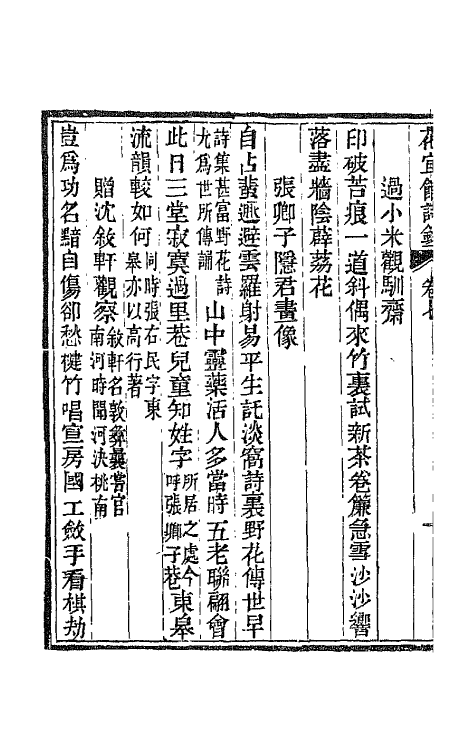 花宜館詩鈔 卷七
過小米觀馴齋
印破苔痕一道斜偶來竹裏試新茶卷簾急雪沙沙響
落盡牆陰薜荔花
張卿子隱君畫像
自占蜚遯避雲羅射易平生託淡窩詩裏野花傳世早
詩集甚富野花詩尤爲世所傳誦 山中靈藥活人多當時五老聯翩會
此日三堂寂寞過里巷兒童知姓字 所居之處今呼張卿子巷 東皋
流韻較如何 同時張右民字東皋亦以高行著
贈沈敘軒觀察 敘軒名敦彝曩嘗官南河時聞河決桃南
豈爲功名黯自傷卻愁楗竹唱宣房國工斂手看棋劫